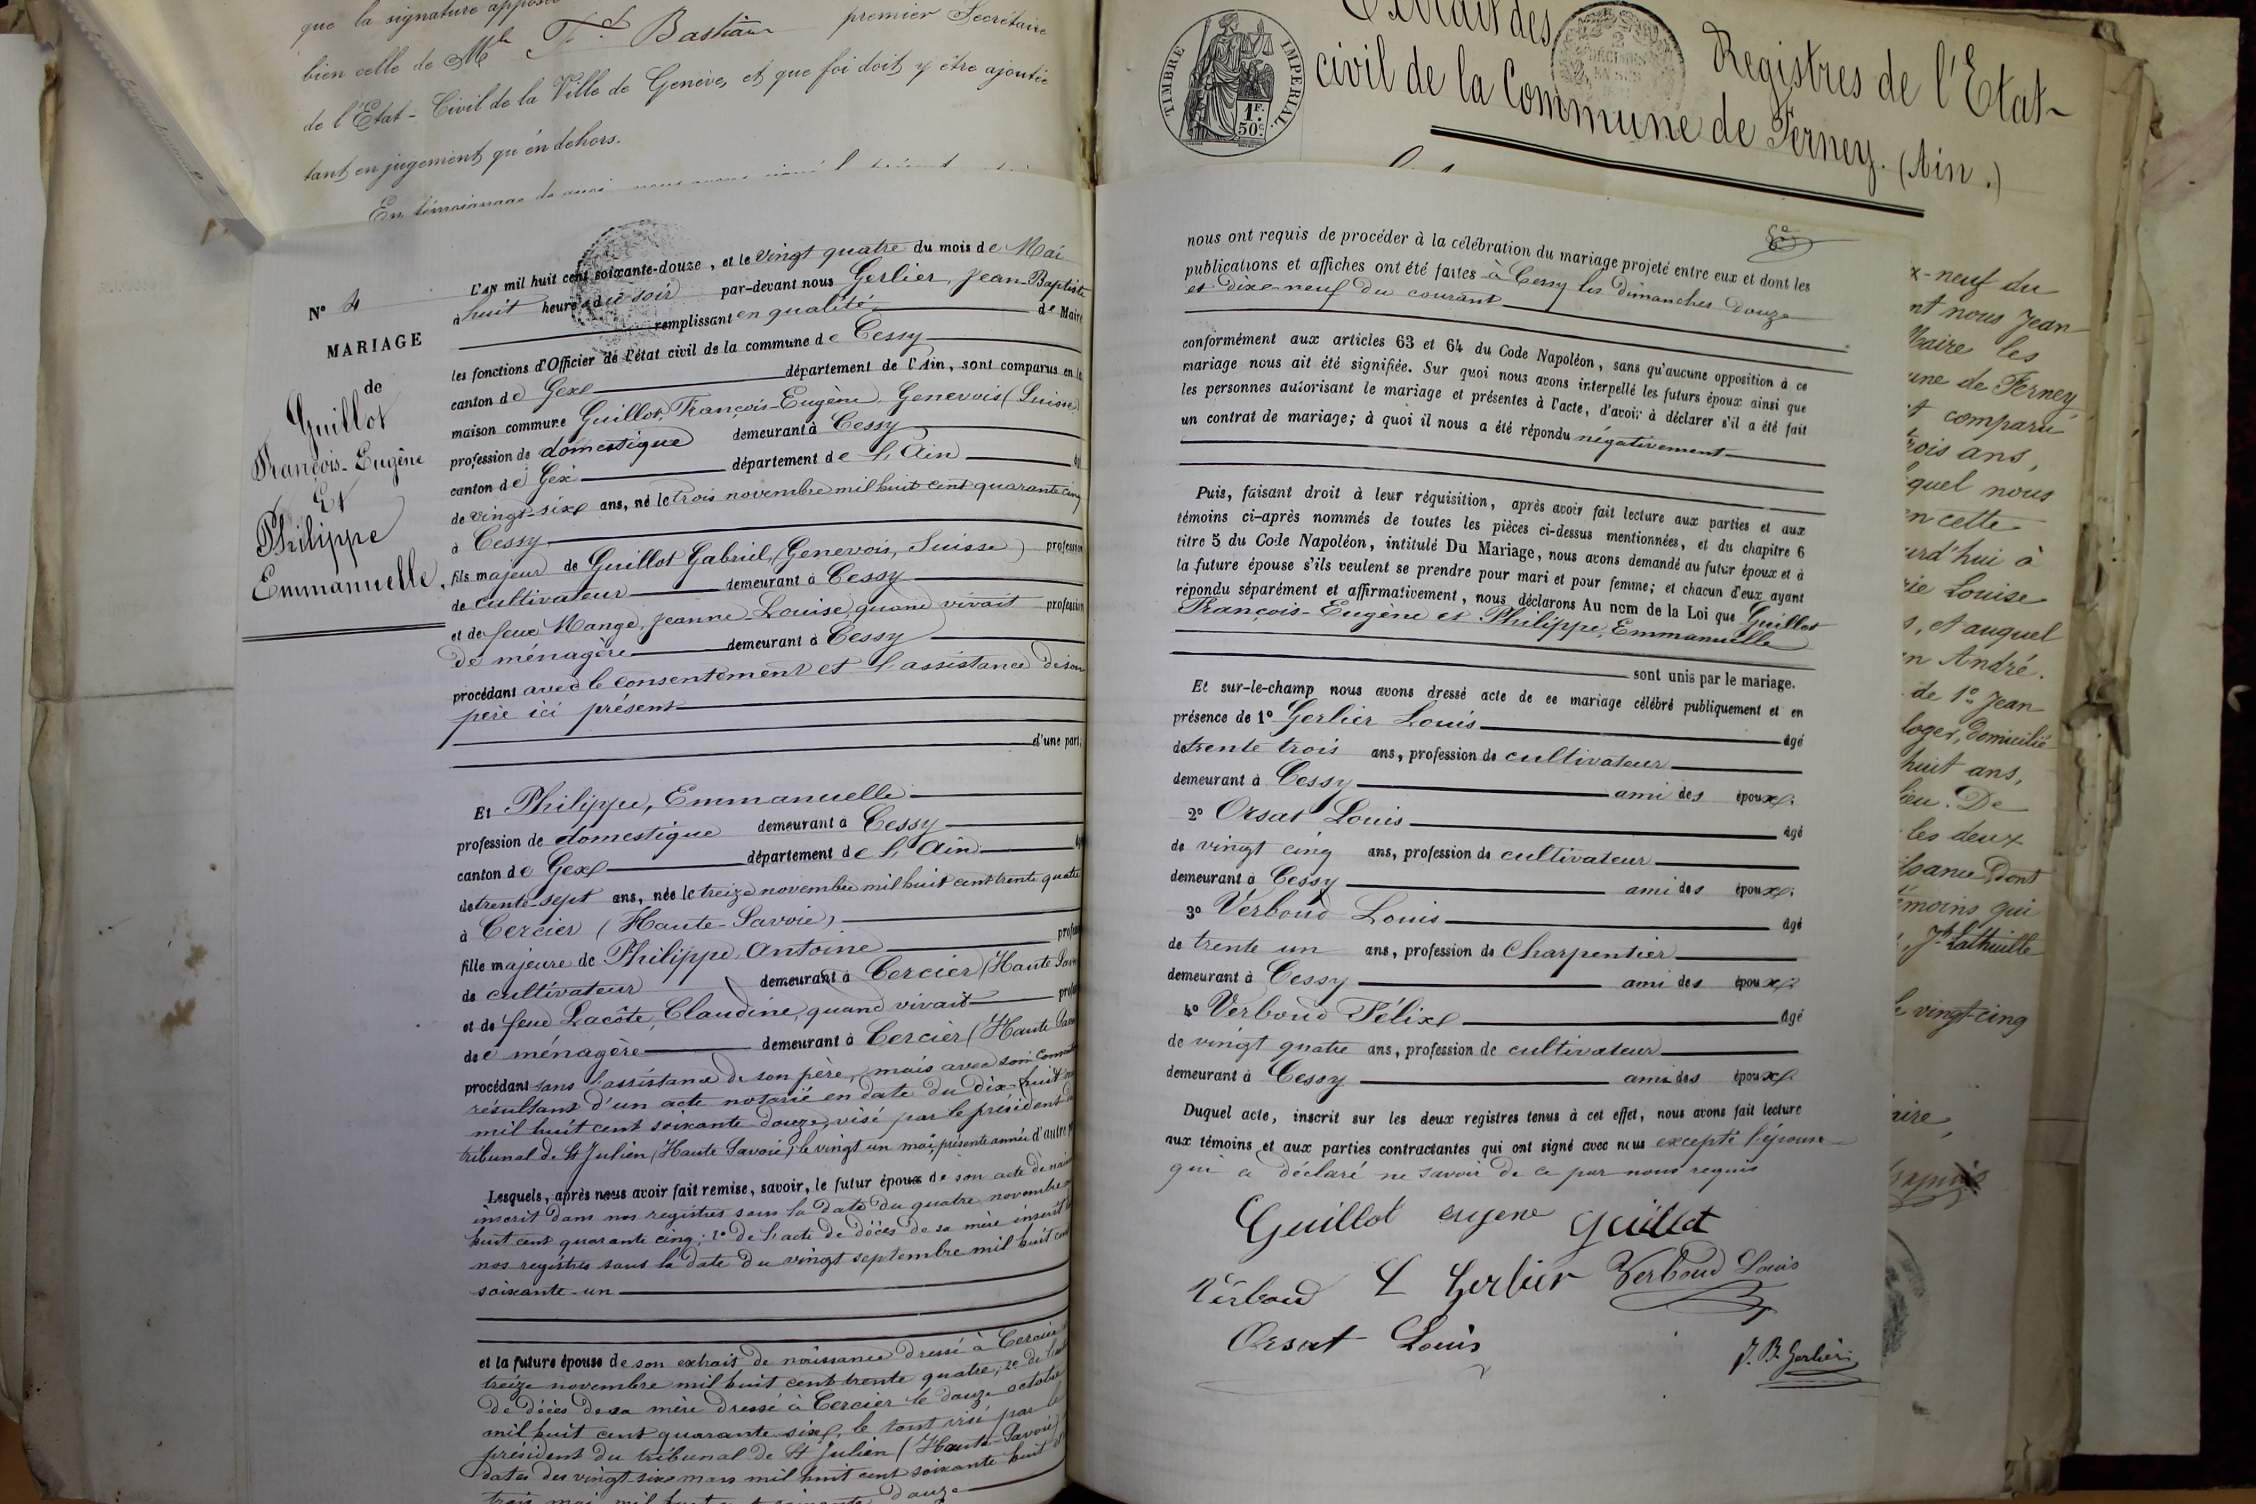 que la signature
bien celle de Mr Fd Bastian premier Secrétaire
de l'Etat-Civil de la Ville de Genève, et que foi doit y être ajoutée
tant en jugement qu'en dehors.
En témoignage de quoi nous avons
TIMBRE IMPERIAL.
1F. 50c
Extrait des Registres de l'Etat-
civil de la Commune de Ferney. (Ain.)
N° 4
MARIAGE
de
Guillot
François-Eugène
Et
Philippe
Emmanuelle.
L'AN mil huit cent soixante-douze, et le vingt quatre du mois de Mai
à huit heures du soir par-devant nous Gerlier, Jean-Baptiste
remplissant en qualité de Maire
les fonctions d'Officier de l'état civil de la commune de Cessy
canton de Gex département de l'Ain, sont comparus en la
maison commune Guillot, François-Eugène, Genevois (Suisse)
profession de domestique demeurant à Cessy
canton de Gex département de l'Ain
de vingt-six ans, né le trois novembre mil huit cent quarante cinq
à Cessy
fils majeur de Guillot Gabriel, (Genevois, Suisse) profession
de cultivateur demeurant à Cessy
et de feue Mange, Jeanne-Louise, quand vivait profession
de ménagère demeurant à Cessy
procédant avec le consentement et l'assistance de son
père ici présent
d'une part;
Et Philippe, Emmanuelle
profession de domestique demeurant à Cessy
canton de Gex département de l'Ain
de trente-sept ans, née le treize novembre mil huit cent trente quatre
à Cercier (Haute-Savoie)
fille majeure de Philippe Antoine
de cultivateur demeurant à Cercier (Haute
et de feue Lacôte, Claudine, quand vivait
de ménagère demeurant à Cercier (Haute
procédant sans l'assistance de son père, mais avec son
résultant d'un acte notarié en date du dix-huit
mil huit cent soixante-douze, visé par le président
tribunal de St Julien (Haute Savoie) le vingt un mai, présente année d'autre
Lesquels, après nous avoir fait remise, savoir, le futur époux de son acte de
inscrit dans nos registres sous la date du quatre novembre
huit cent quarante cinq; 2° de l'acte de décès de sa mère inscrit
nos registres sous la date du vingt septembre mil huit cent
soixante-un
et la future épouse de son extrait de naissance dressé à Cercier
treize novembre mil huit cent trente quatre; 2° de
de décès de sa mère dressé à Cercier le douze octobre
mil huit cent quarante-six, le tout visé par le
président du tribunal de St Julien (Haute-Savoie)
dates des vingt-six mars mil huit cent soixante huit
trois mai mil huit cent soixante douze
nous ont requis de procéder à la célébration du mariage projeté entre eux et dont les
publications et affiches ont été faites à Cessy les dimanches douze
et dix-neuf du courant
conformément aux articles 63 et 64 du Code Napoléon, sans qu'aucune opposition à ce
mariage nous ait été signifiée. Sur quoi nous avons interpellé les futurs époux ainsi que
les personnes autorisant le mariage et présentes à l'acte, d'avoir à déclarer s'il a été fait
un contrat de mariage; à quoi il nous a été répondu négativement
Puis, faisant droit à leur réquisition, après avoir fait lecture aux parties et aux
témoins ci-après nommés de toutes les pièces ci-dessus mentionnées, et du chapitre 6
titre 5 du Code Napoléon, intitulé Du Mariage, nous avons demandé au futur époux et à
la future épouse s'ils veulent se prendre pour mari et pour femme; et chacun d'eux ayant
répondu séparément et affirmativement, nous déclarons Au nom de la Loi que Guillot
François-Eugène et Philippe, Emmanuelle
sont unis par le mariage.
Et sur-le-champ nous avons dressé acte de ce mariage célébré publiquement et en
présence de 1° Gerlier Louis âgé
de trente trois ans, profession de cultivateur
demeurant à Cessy ami des époux.
2° Orsat Louis âgé
de vingt cinq ans, profession de cultivateur
demeurant à Cessy ami des époux.
3° Verboud Louis âgé
de trente un ans, profession de Charpentier
demeurant à Cessy ami des époux.
4° Verboud Félix âgé
de vingt quatre ans, profession de cultivateur
demeurant à Cessy ami des époux.
Duquel acte, inscrit sur les deux registres tenus à cet effet, nous avons fait lecture
aux témoins et aux parties contractantes qui ont signé avec nous excepté l'épouse
qui a déclaré ne savoir de ce par nous requis
Guillot eugene Guillot
Verboud L Gerlier Verboud Louis
Orsat Louis
J. B. Gerlier
x-neuf du
nt nous Jean
Maire les
une de Ferney,
t comparu
rois ans,
quel nous
en cette
urd'hui à
rie Louise
s, et auquel
n André.
de 1° Jean
loger, domicilié
huit ans,
lieu. De
les deux
dont
émoins qui
Jh Lathuille
le vingt-cinq
aire,